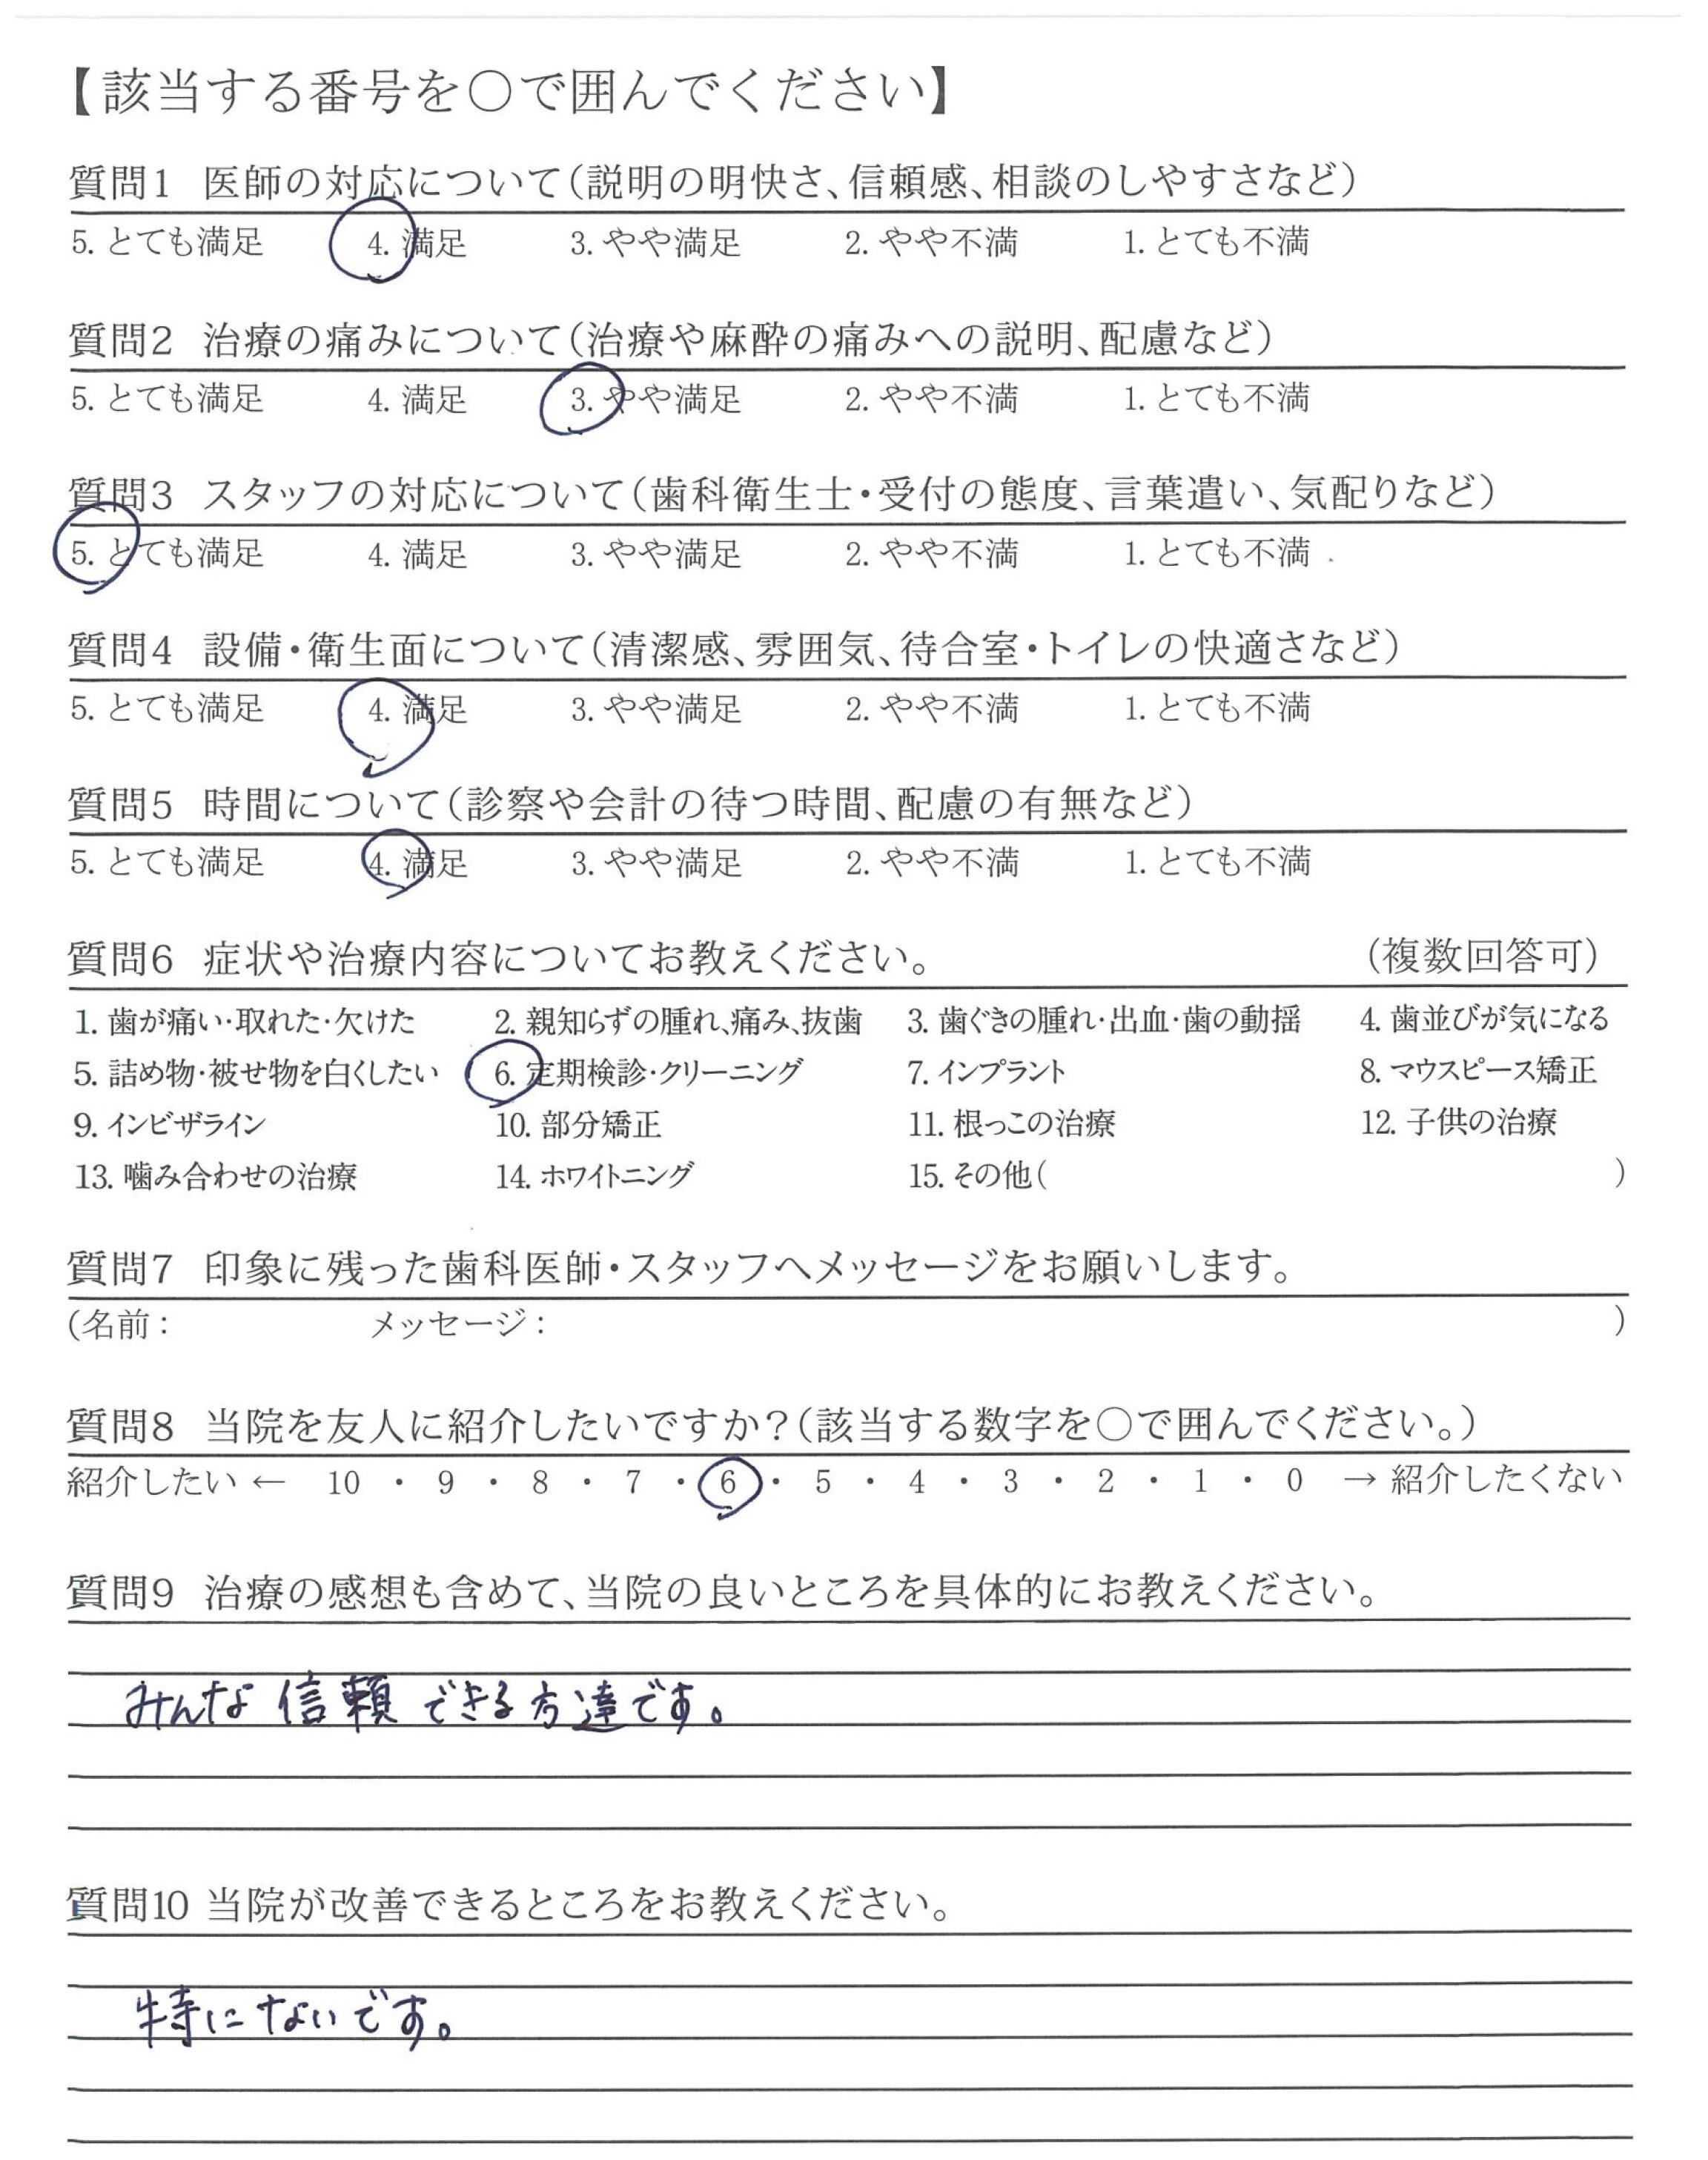 【該当する番号を○で囲んでください】
質問1 医師の対応について(説明の明快さ、信頼感、相談のしやすさなど)
5. とても満足 4. 満足 3. やや満足 2. やや不満 1. とても不満
質問2 治療の痛みについて(治療や麻酔の痛みへの説明、配慮など)
5. とても満足 4. 満足 3. やや満足 2. やや不満 1. とても不満
質問3 スタッフの対応について(歯科衛生士・受付の態度、言葉遣い、気配りなど)
5. とても満足 4. 満足 3. やや満足 2. やや不満 1. とても不満
質問4 設備・衛生面について(清潔感、雰囲気、待合室・トイレの快適さなど)
5. とても満足 4. 満足 3. やや満足 2. やや不満 1. とても不満
質問5 時間について(診察や会計の待つ時間、配慮の有無など)
5. とても満足 4. 満足 3. やや満足 2. やや不満 1. とても不満
質問6 症状や治療内容についてお教えください。 (複数回答可)
1. 歯が痛い・取れた・欠けた 2. 親知らずの腫れ、痛み、抜歯 3. 歯ぐきの腫れ・出血・歯の動揺 4. 歯並びが気になる
5. 詰め物・被せ物を白くしたい 6. 定期検診・クリーニング 7. インプラント 8. マウスピース矯正
9. インビザライン 10. 部分矯正 11. 根っこの治療 12. 子供の治療
13. 噛み合わせの治療 14. ホワイトニング 15. その他( )
質問7 印象に残った歯科医師・スタッフへメッセージをお願いします。
(名前: メッセージ: )
質問8 当院を友人に紹介したいですか?(該当する数字を○で囲んでください。)
紹介したい ← 10 ・ 9 ・ 8 ・ 7 ・ 6 ・ 5 ・ 4 ・ 3 ・ 2 ・ 1 ・ 0 → 紹介したくない
質問9 治療の感想も含めて、当院の良いところを具体的にお教えください。
みんな信頼できる方達です。
質問10 当院が改善できるところをお教えください。
特にないです。